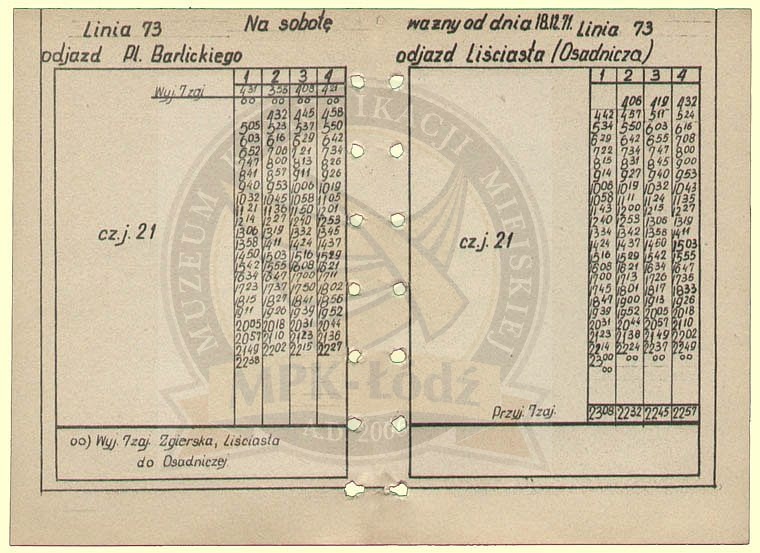 Linia 73 Na sobotę
odjazd Pl. Barlickiego
1 2 3 4
Wyj. 7zaj 4 31 3 55 4 08 4 21
oo oo oo oo
4 32 4 45 4 58
5 05 5 23 5 37 5 50
6 03 6 16 6 29 6 42
6 52 7 08 7 21 7 34
7 47 8 00 8 13 8 26
8 41 8 57 9 11 9 26
9 40 9 53 10 06 10 19
10 32 10 45 10 58 11 05
11 21 11 36 11 50 12 01
12 14 12 27 12 40 12 53
13 06 13 19 13 32 13 45
13 58 14 11 14 24 14 37
14 50 15 03 15 16 15 29
15 42 15 55 16 08 16 21
16 34 16 47 17 00 17 11
17 23 17 37 17 50 18 02
18 15 18 27 18 41 18 56
19 11 19 26 19 39 19 52
20 05 20 18 20 31 20 44
20 57 21 10 21 23 21 36
21 49 22 02 22 15 22 27
22 38
cz.j. 21
oo) Wyj. 7zaj. Zgierska, Liściasta
do Osadniczej
ważny od dnia 18.12.71. Linia 73
odjazd Liściasta (Osadnicza)
1 2 3 4
4 06 4 19 4 32
4 42 4 57 5 11 5 24
5 34 5 50 6 03 6 16
6 29 6 42 6 55 7 08
7 22 7 34 7 47 8 00
8 15 8 31 8 45 9 00
9 14 9 27 9 40 9 53
10 06 10 19 10 32 10 43
10 58 11 11 11 24 11 35
11 43 12 00 12 15 12 27
12 40 12 53 13 06 13 19
13 34 13 42 13 58 14 11
14 24 14 37 14 50 15 03
15 16 15 29 15 42 15 55
16 08 16 21 16 34 16 47
17 00 17 13 17 26 17 35
17 45 18 01 18 17 18 33
18 47 19 00 19 13 19 26
19 39 19 52 20 05 20 18
20 31 20 44 20 57 21 10
21 23 21 36 21 49 22 02
22 14 22 24 22 37 22 49
23 00 oo oo oo
oo
cz.j. 21
Przyj. 7zaj. 23 08 22 32 22 45 22 57
MUZEUM KOMUNIKACJI MIEJSKIEJ
MPK-Łódź
A.D. 200